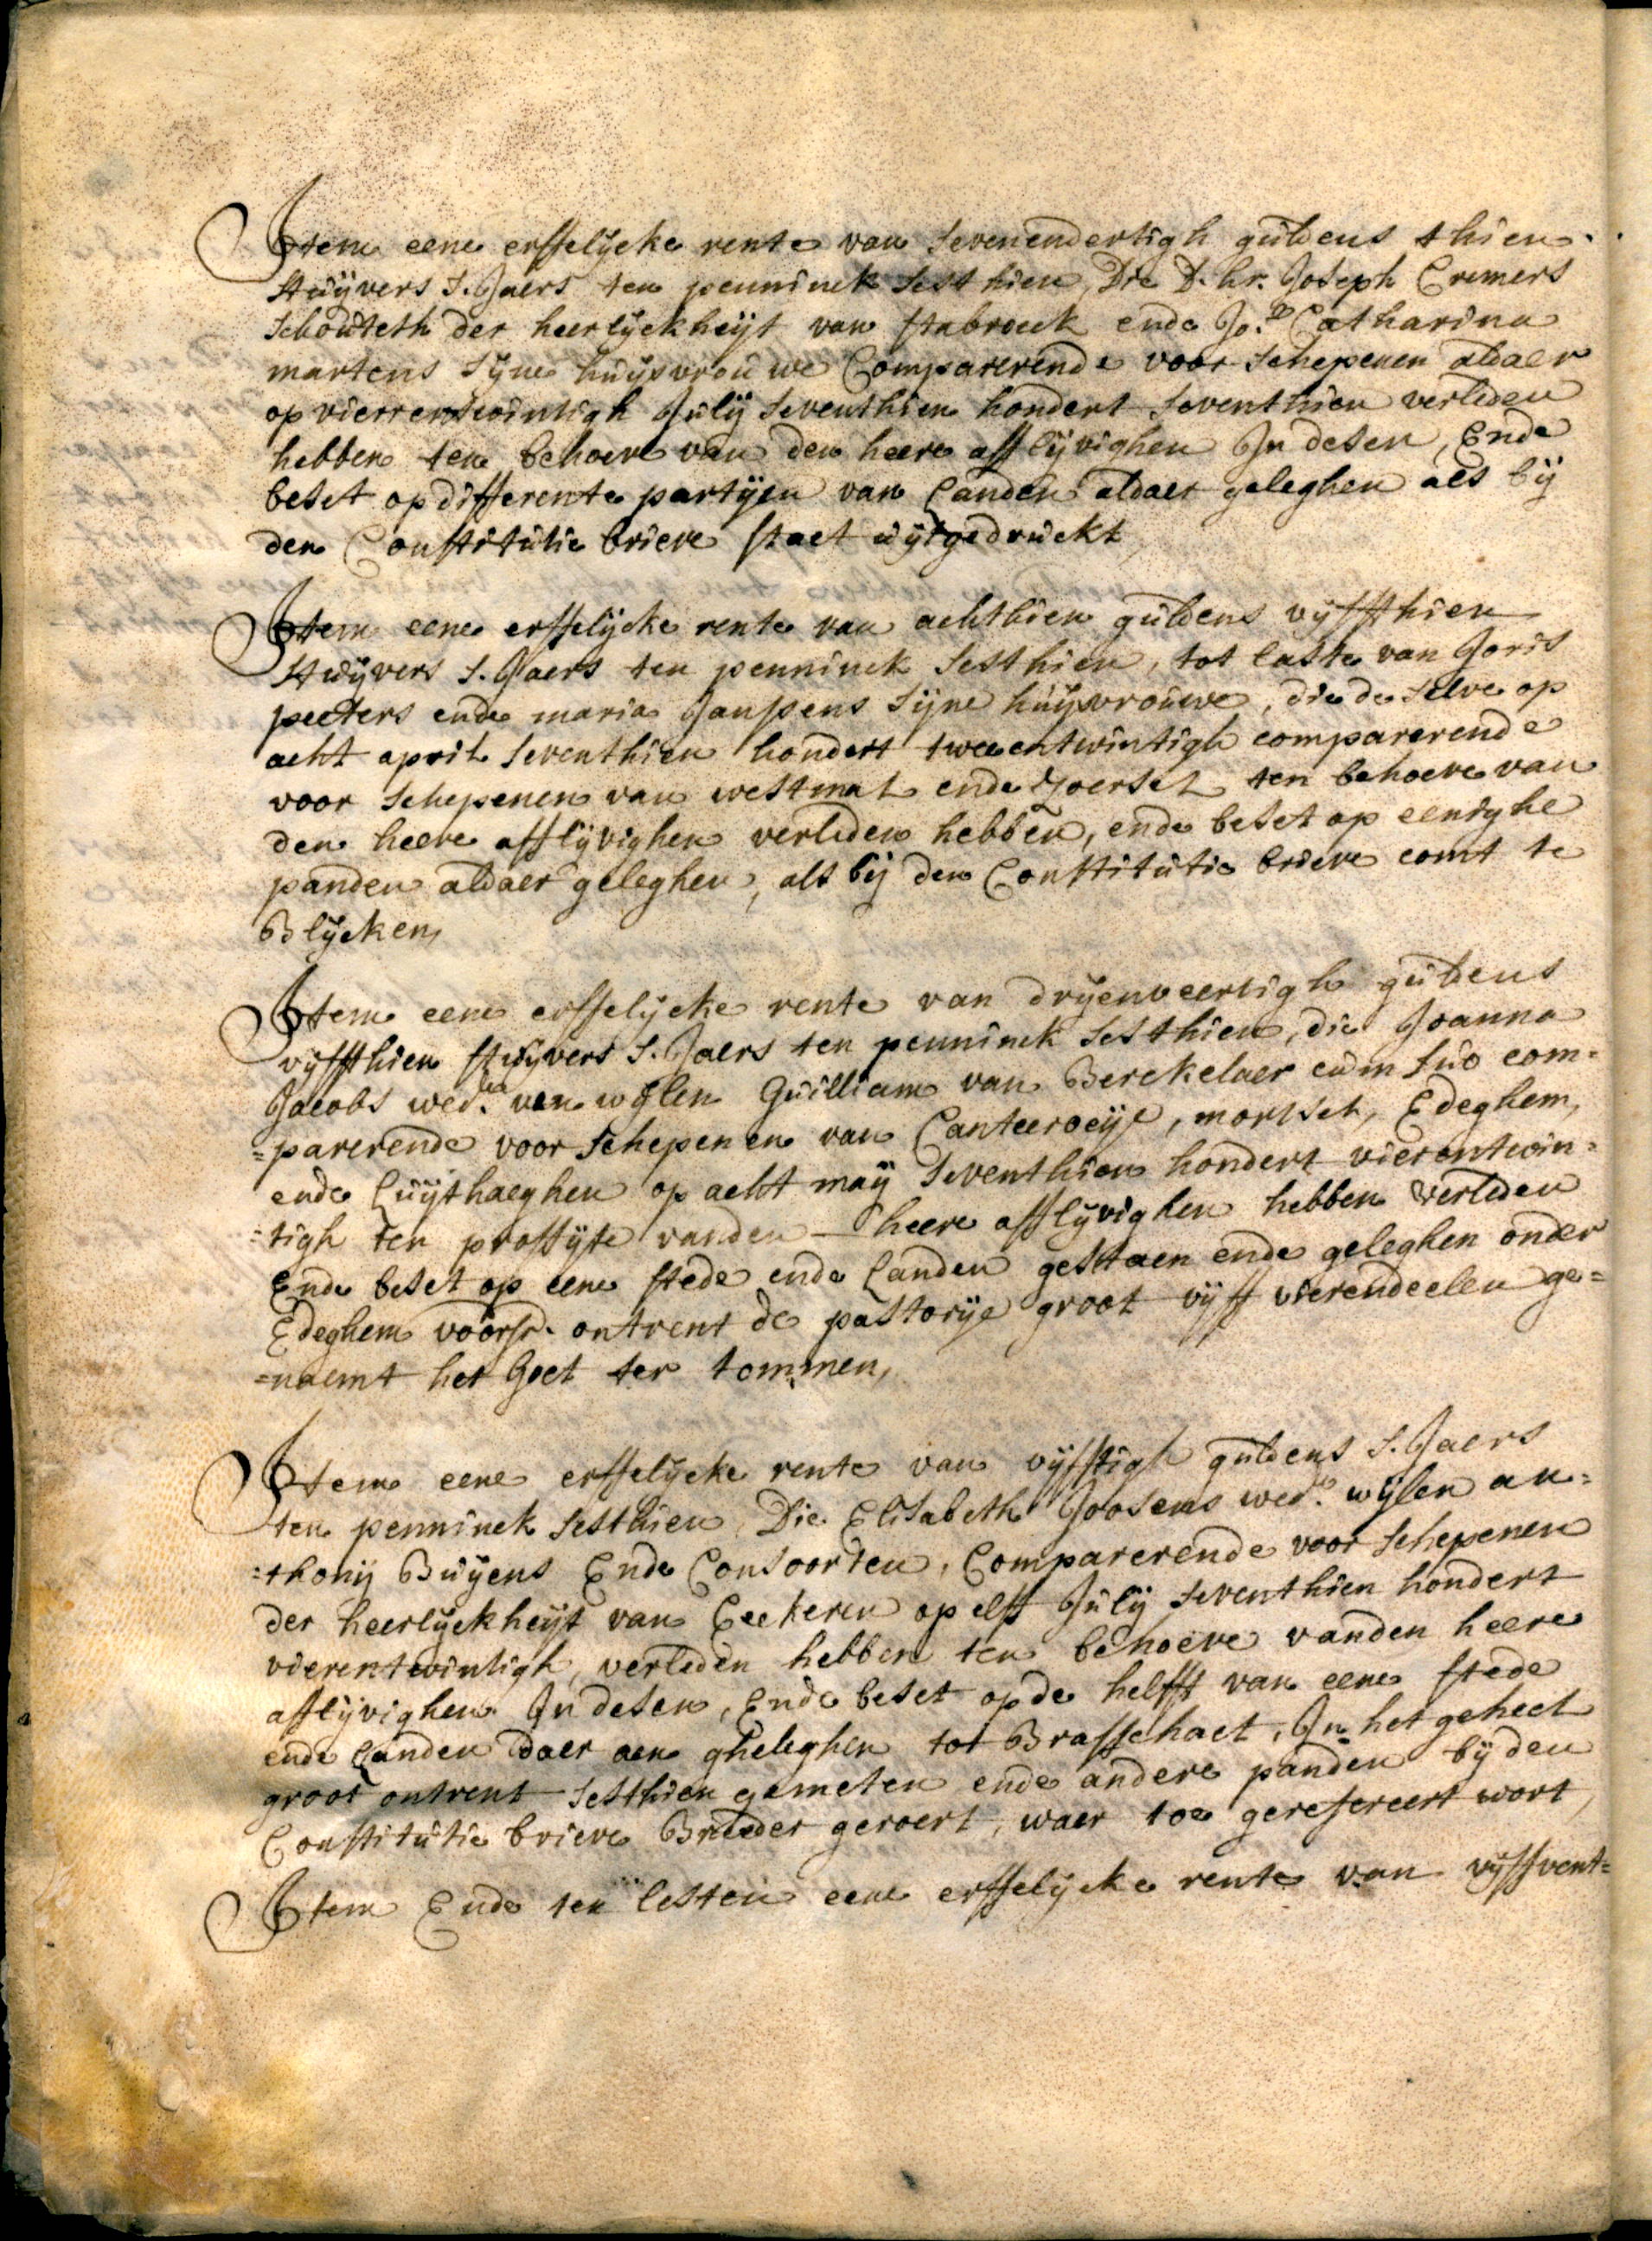 Item eene erffelijcke rente van sevenendertigh guldens thien
stuijvers s.Jaers ten penninck sesthien, Die D.hr. Joseph Cremers
schouteth der heerlijckheijt van stabroeck ende Jo.e Catharina
martens sijne huijsvrouwe Comparerende voor schepenen aldaer
op vierrentwintigh Julij seventhien hondert seventhien verleden
hebben ten behoeve van den heere afflijvighen In desen, Ende
beset op differente partijen van Landen aldaer geleghen als bij
den Constitutie brieve staet uijtgedruckt,
Item eene erffelijcke rente van achthien guldens vijffthien
stuijvers s.Jaers ten penninck sesthien, tot laste van Joris
peeters ende maria Janssens sijne huijsvrouwe, die de selve op
acht april seventhien hondert tweeentwintigh comparerende
voor schepenen van westmal ende Zoersel ten behoeve van
den heere afflijvighen verleden hebben, ende beset op eenighe
panden aldaer geleghen, als bij den Constitutie brieve comt te
Blijcken,
Item eene erffelijcke rente van drijenveertigh guldens
vijffthien stuijvers s.Jaers ten penninck sesthien, die Joanna
Jacobs wed.e van wijlen Guilliam van Berckelaer cum suo com=
=parerende voor schepenen van Canteeroeije, mortsel, Edeghem,
ende Luijthaeghen op acht meij seventhien hondert vierentwin=
=tigh ten proffijte vanden heere afflijvighen hebben verleden
Ende beset op eene stede ende Landen gestaen ende geleghen onder
Edeghem voorsr. ontrent de pastorije groot vijff vierendeelen ge=
=naemt het Goet ter tommen,
Item eene erffelijcke rente van vijfftigh guldens s.Jaers
ten penninck sesthien, Die Elisabeth Joosens wed.e wijlen an=
=thonij Buijens Ende Consoorten, Comparerende voor schepenen
der heerlijckheijt van Eeckeren op elff Julij seventhien hondert
vierentwintigh, verleden hebben ten behoeve vanden heere
afflijvighen In desen, Ende beset op de helfft van eene stede
ende Landen daer aen gheleghen tot Brasschaet, In het geheel
groot ontrent sesthien gemeten ende andere panden bij den
Constitutie brieve Breeder geroert, waer toe gerefereert wort,
Item Ende ten lesten eene erffelijcke rente van vijffvent=